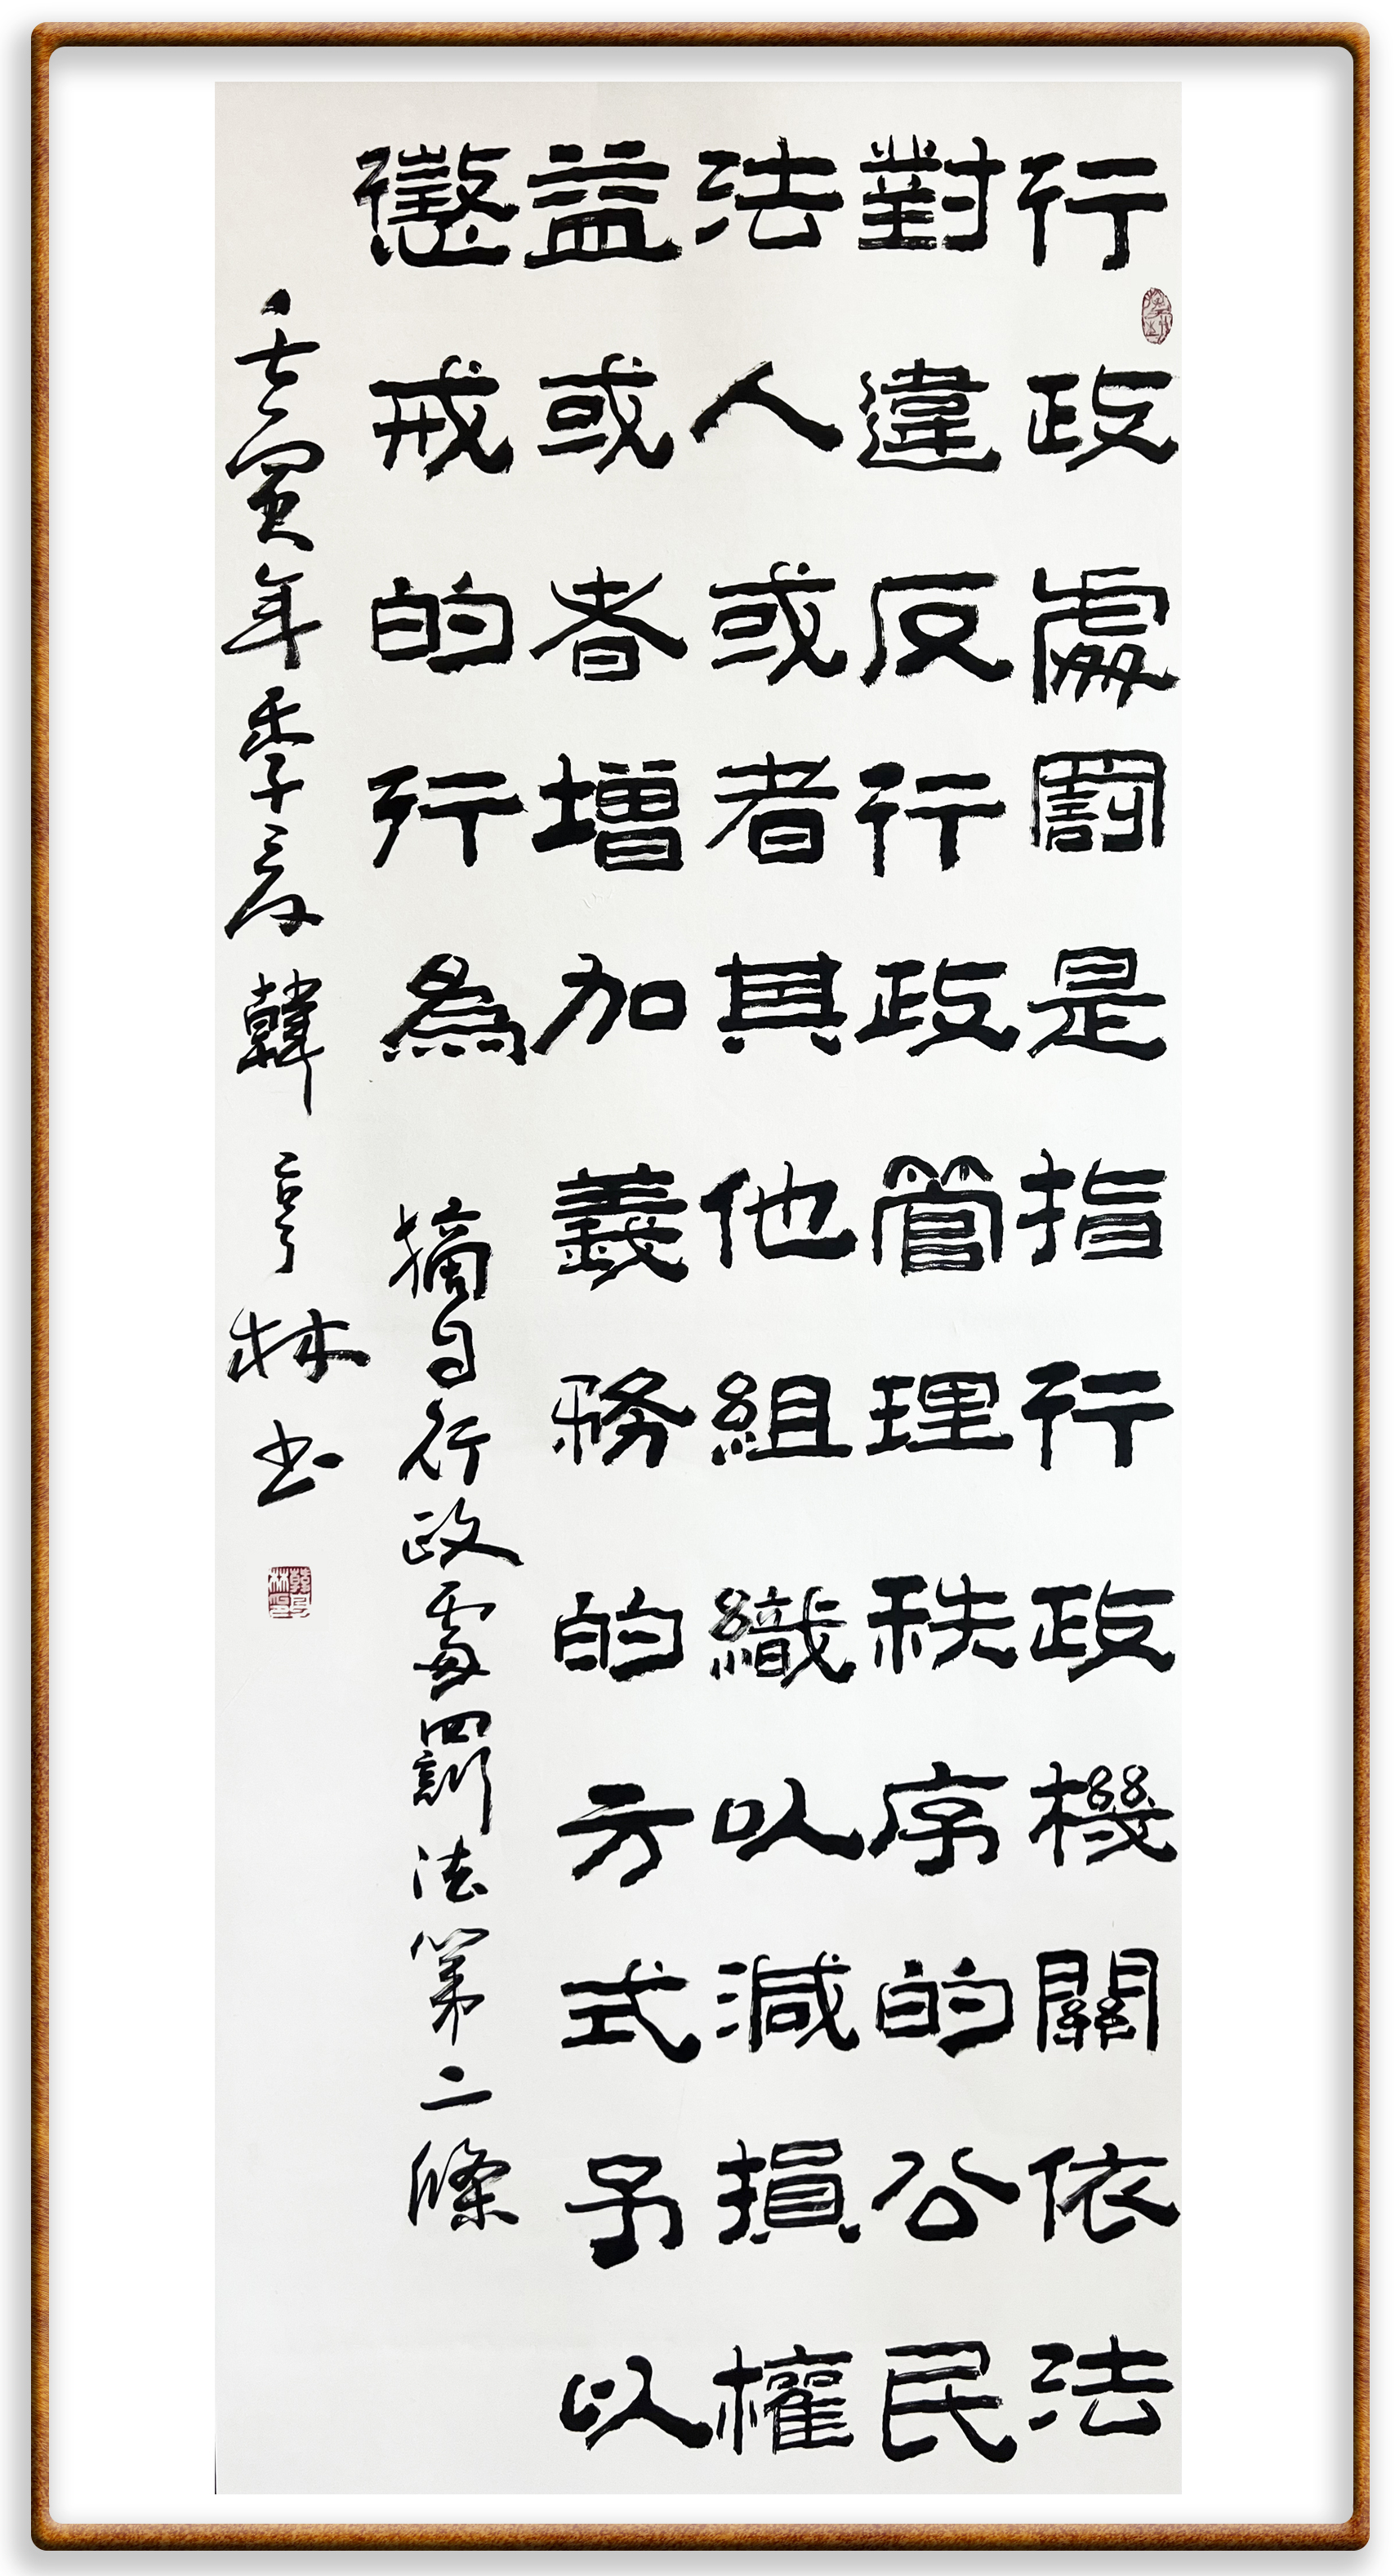 行政處罰是指行政機關依法
對違反行政管理秩序的公民
法人或者其他組織以減損權
益或者增加義務的方式予以
懲戒的行為
摘自行政處罰法第二條
壬寅年季夏韓亨林书